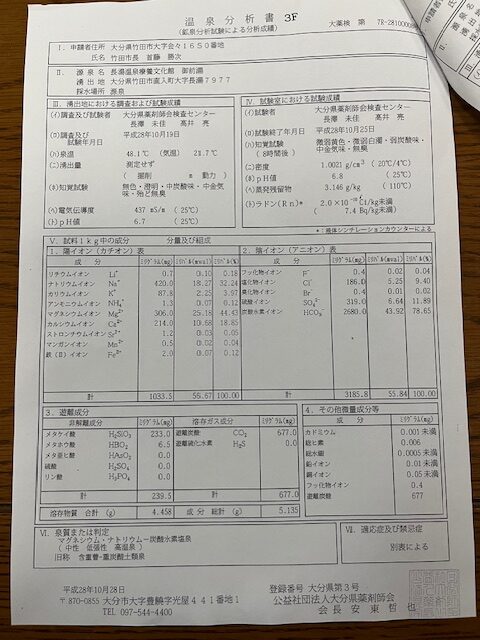 温泉分析書 3F
(鉱泉分析試験による分析成績)
大薬検 第 7R-2810000
Ⅰ. 申請者住所 大分県竹田市大字会々1650番地
氏名 竹田市長 首藤 勝次
Ⅱ. 源泉名 長湯温泉療養文化館 御前湯
湧出地 大分県竹田市直入町大字長湯7977
採水場所 源泉
Ⅲ. 湧出地における調査および試験成績
(イ)調査および試験者 大分県薬剤師会検査センター
長澤 未佳 高井 亮
(ロ)調査及び試験年月日 平成28年10月19日
(ハ)泉温 48.1℃ (気温) 21.7℃
(ニ)湧出量 測定せず
(掘削 m 動力)
(ホ)知覚試験 無色・澄明・中炭酸味・中金気味・殆ど無臭
(ヘ)電気伝導度 437 mS/m (25℃)
(ト)pH値 6.7 (25℃)
Ⅳ. 試験室における試験成績
(イ)試験者 大分県薬剤師会検査センター
長澤 未佳 高井 亮
(ロ)試験終了年月日 平成28年10月25日
(ハ)知覚試験 (8時間後) 微弱黄色・微弱白濁・弱炭酸味・中金気味・無臭
(ニ)密度 1.0021 g/cm³ (20℃/4℃)
(ホ)pH値 6.8 (25℃)
(ヘ)蒸発残留物 3.146 g/kg (110℃)
(ト)ラドン(Rn)* 2.0 ×10 Ci/kg未満
( 7.4 Bq/kg未満)
*:液体シンチレーションカウンターによる
Ⅴ. 試料1kg中の成分 分量及び組成
1. 陽イオン(カチオン)表
成分 ミリグラム(mg) ミリバル(mval) ミリバル(%)
リチウムイオン Li⁺ 0.7 0.10 0.18
ナトリウムイオン Na⁺ 420.0 18.27 32.24
カリウムイオン K⁺ 87.8 2.25 3.97
アンモニウムイオン NH₄⁺ 1.3 0.07 0.12
マグネシウムイオン Mg²⁺ 306.0 25.18 44.43
カルシウムイオン Ca²⁺ 214.0 10.68 18.85
ストロンチウムイオン Sr²⁺ 1.2 0.03 0.05
マンガンイオン Mn²⁺ 0.5 0.02 0.04
鉄(Ⅱ)イオン Fe²⁺ 2.0 0.07 0.12
計 1033.5 56.67 100.00
2. 陰イオン(アニオン)表
成分 ミリグラム(mg) ミリバル(mval) ミリバル(%)
フッ化物イオン F⁻ 0.4 0.02 0.04
塩化物イオン Cl⁻ 186.0 5.25 9.40
臭化物イオン Br⁻ 0.4 0.01 0.02
硫酸イオン SO₄²⁻ 319.0 6.64 11.89
炭酸水素イオン HCO₃⁻ 2680.0 43.92 78.65
計 3185.8 55.84 100.00
3. 遊離成分
非解離成分 ミリグラム(mg)
メタケイ酸 H₂SiO₃ 233.0
メタホウ酸 HBO₂ 6.5
メタ亜ヒ酸 HAsO₂ 0.0
硫酸 H₂SO₄ 0.0
リン酸 H₃PO₄ 0.0
計 239.5
溶存ガス成分 ミリグラム(mg)
遊離炭酸 CO₂ 677.0
遊離硫化水素 H₂S 0.0
計 677.0
溶存物質 合計 (g) 4.458
成分 総計 (g) 5.135
4. その他微量成分等
成分 ミリグラム(mg)
カドミウム 0.001 未満
総ヒ素 0.006
総水銀 0.0005 未満
鉛イオン 0.01 未満
銅イオン 0.05 未満
フッ化物イオン 0.4
遊離炭酸 677
Ⅵ. 泉質または判定
マグネシウム・ナトリウム-炭酸水素塩泉
(中性 低張性 高温泉)
旧称 含重曹-重炭酸土類泉
Ⅶ. 適応症及び禁忌症
別表による
平成28年10月28日
〒870-0855 大分市大字豊饒字光屋441番地1
TEL 097-544-4400
登録番号 大分県第3号
公益社団法人大分県薬剤師会
会長 安東 哲也